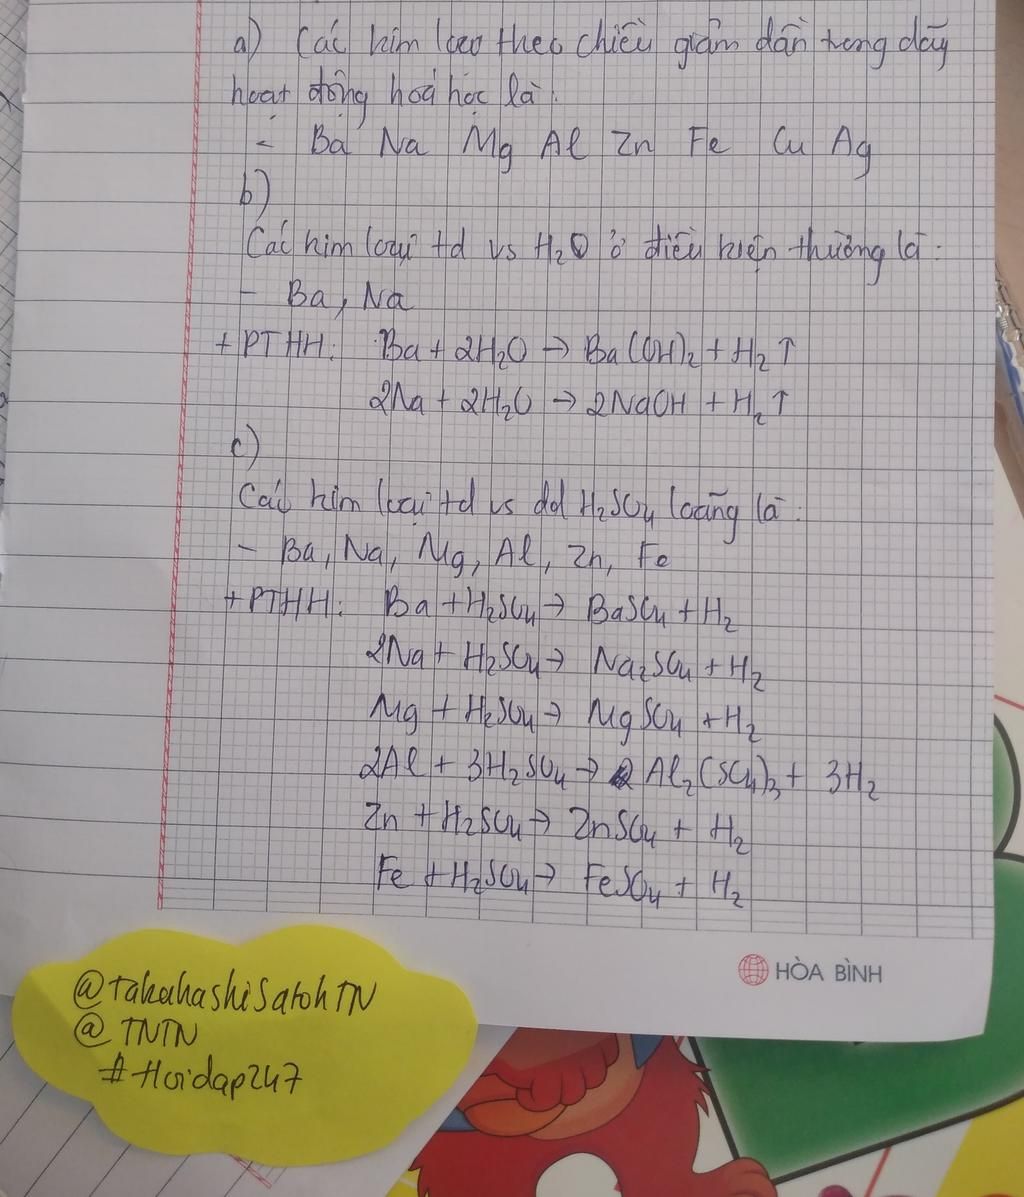 a) Các kim loại theo chiều giảm dần trong dãy
hoạt động hoá học là:
- Ba Na Mg Al Zn Fe Cu Ag
b)
Các kim loại td vs H₂O ở điều kiện thường là:
- Ba, Na
+ PTHH: Ba + 2H₂O → Ba(OH)₂ + H₂↑
2Na + 2H₂O → 2NaOH + H₂↑
c)
Các kim loại td vs dd H₂SO₄ loãng là:
- Ba, Na, Mg, Al, Zn, Fe
+ PTHH: Ba + H₂SO₄ → BaSO₄ + H₂
2Na + H₂SO₄ → Na₂SO₄ + H₂
Mg + H₂SO₄ → MgSO₄ + H₂
2Al + 3H₂SO₄ → Al₂(SO₄)₃ + 3H₂
Zn + H₂SO₄ → ZnSO₄ + H₂
Fe + H₂SO₄ → FeSO₄ + H₂
HÒA BÌNH
@takahashisatohTN
@TNTN
#Hoidap247